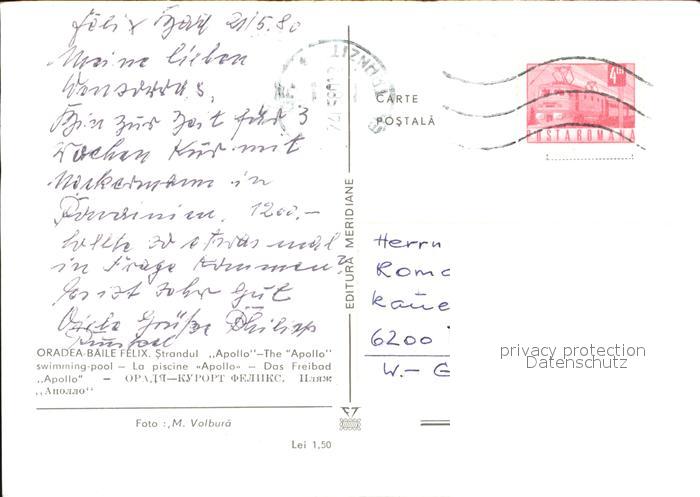 Felix Bad 21/5.80
Meine lieben
Bin zur Zeit für 3
Wochen Kur mit
Neckermann in
Rumänien. 1200,-
Sollte so etwas mal
in Frage kommen?
Es ist sehr gut
Viele Grüße Philipp
ORADEA-BĂILE FELIX. Ştrandul „Apollo"—The "Apollo"
swimming-pool — La piscine «Apollo» — Das Freibad
„Apollo" — ОРАДЯ—КУРОРТ ФЕЛИКС. Пляж
„Аполло"
Foto : „M. Volbură
Lei 1,50
EDITURA MERIDIANE
CARTE
POŞTALĂ
4 LEI
POSTA ROMANA
Herrn
Roma
Kaue
6200
W.- G
privacy protection
Datenschutz